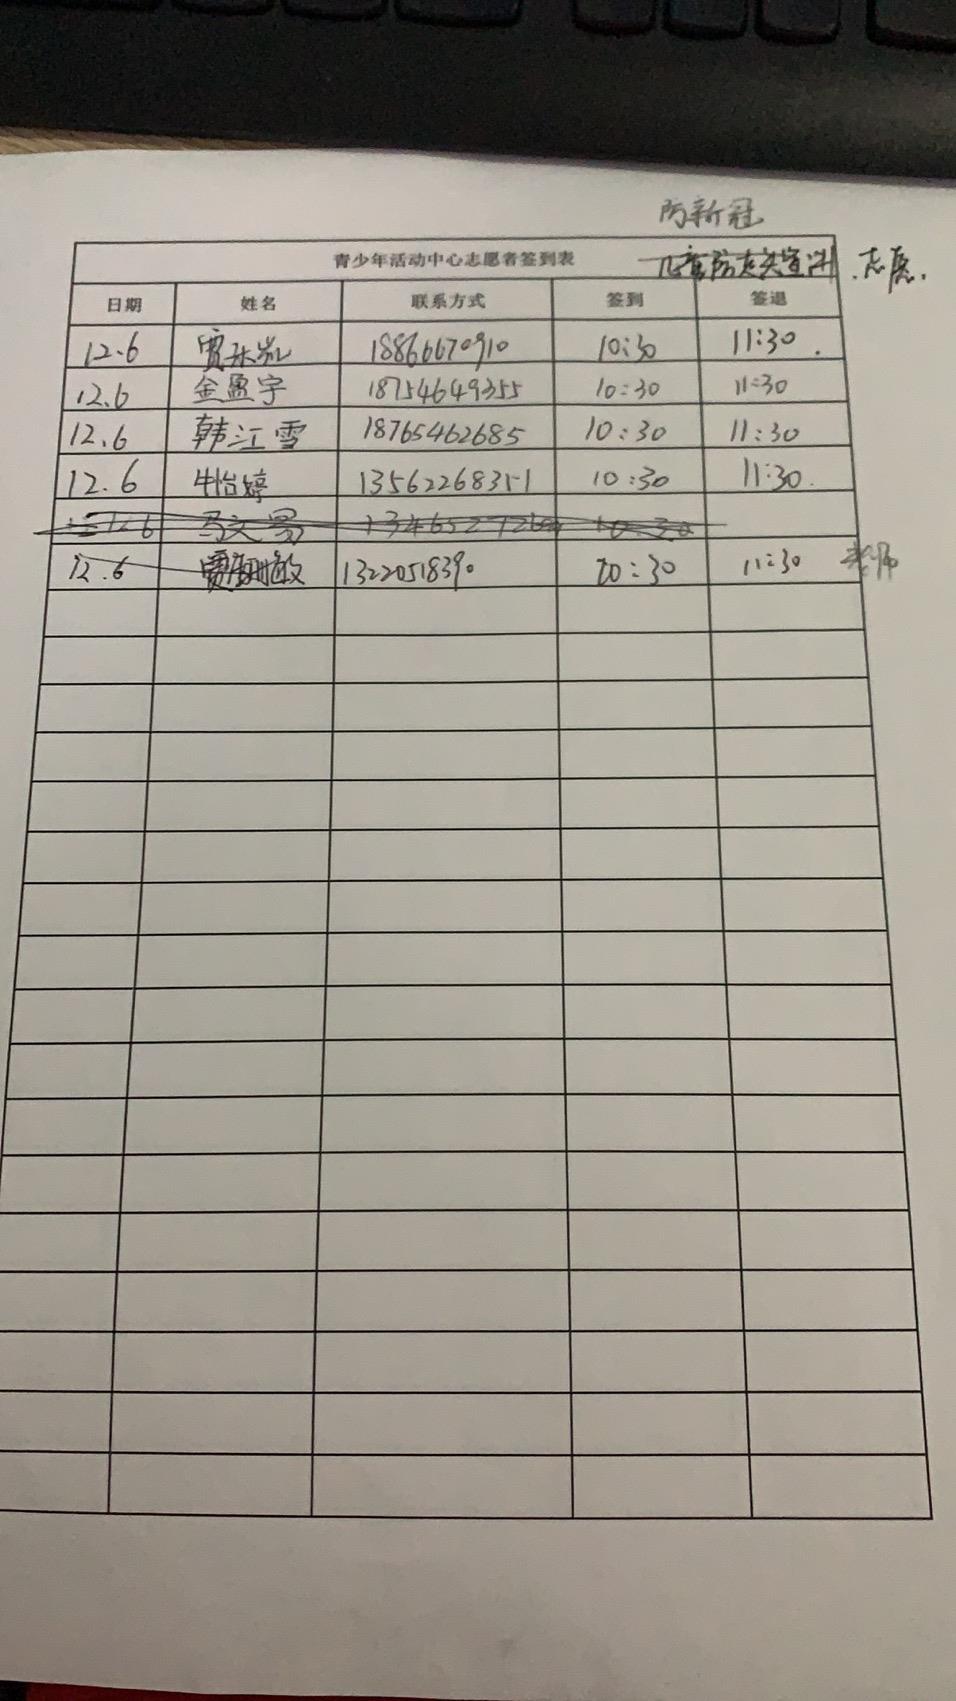 防新冠
青少年活动中心志愿者签到表 儿童防走失宣讲.志愿.
日期 姓名 联系方式 签到 签退
12.6 贾乐凯 18866670910 10:30 11:30.
12.6 金盈宇 18754649355 10:30 11:30
12.6 韩江雪 18765462685 10:30 11:30
12.6 牛怡婷 13562268351 10:30 11:30.
12.6 马文 10:30
12.6 贾 13220518390 10:30 11:30 老师